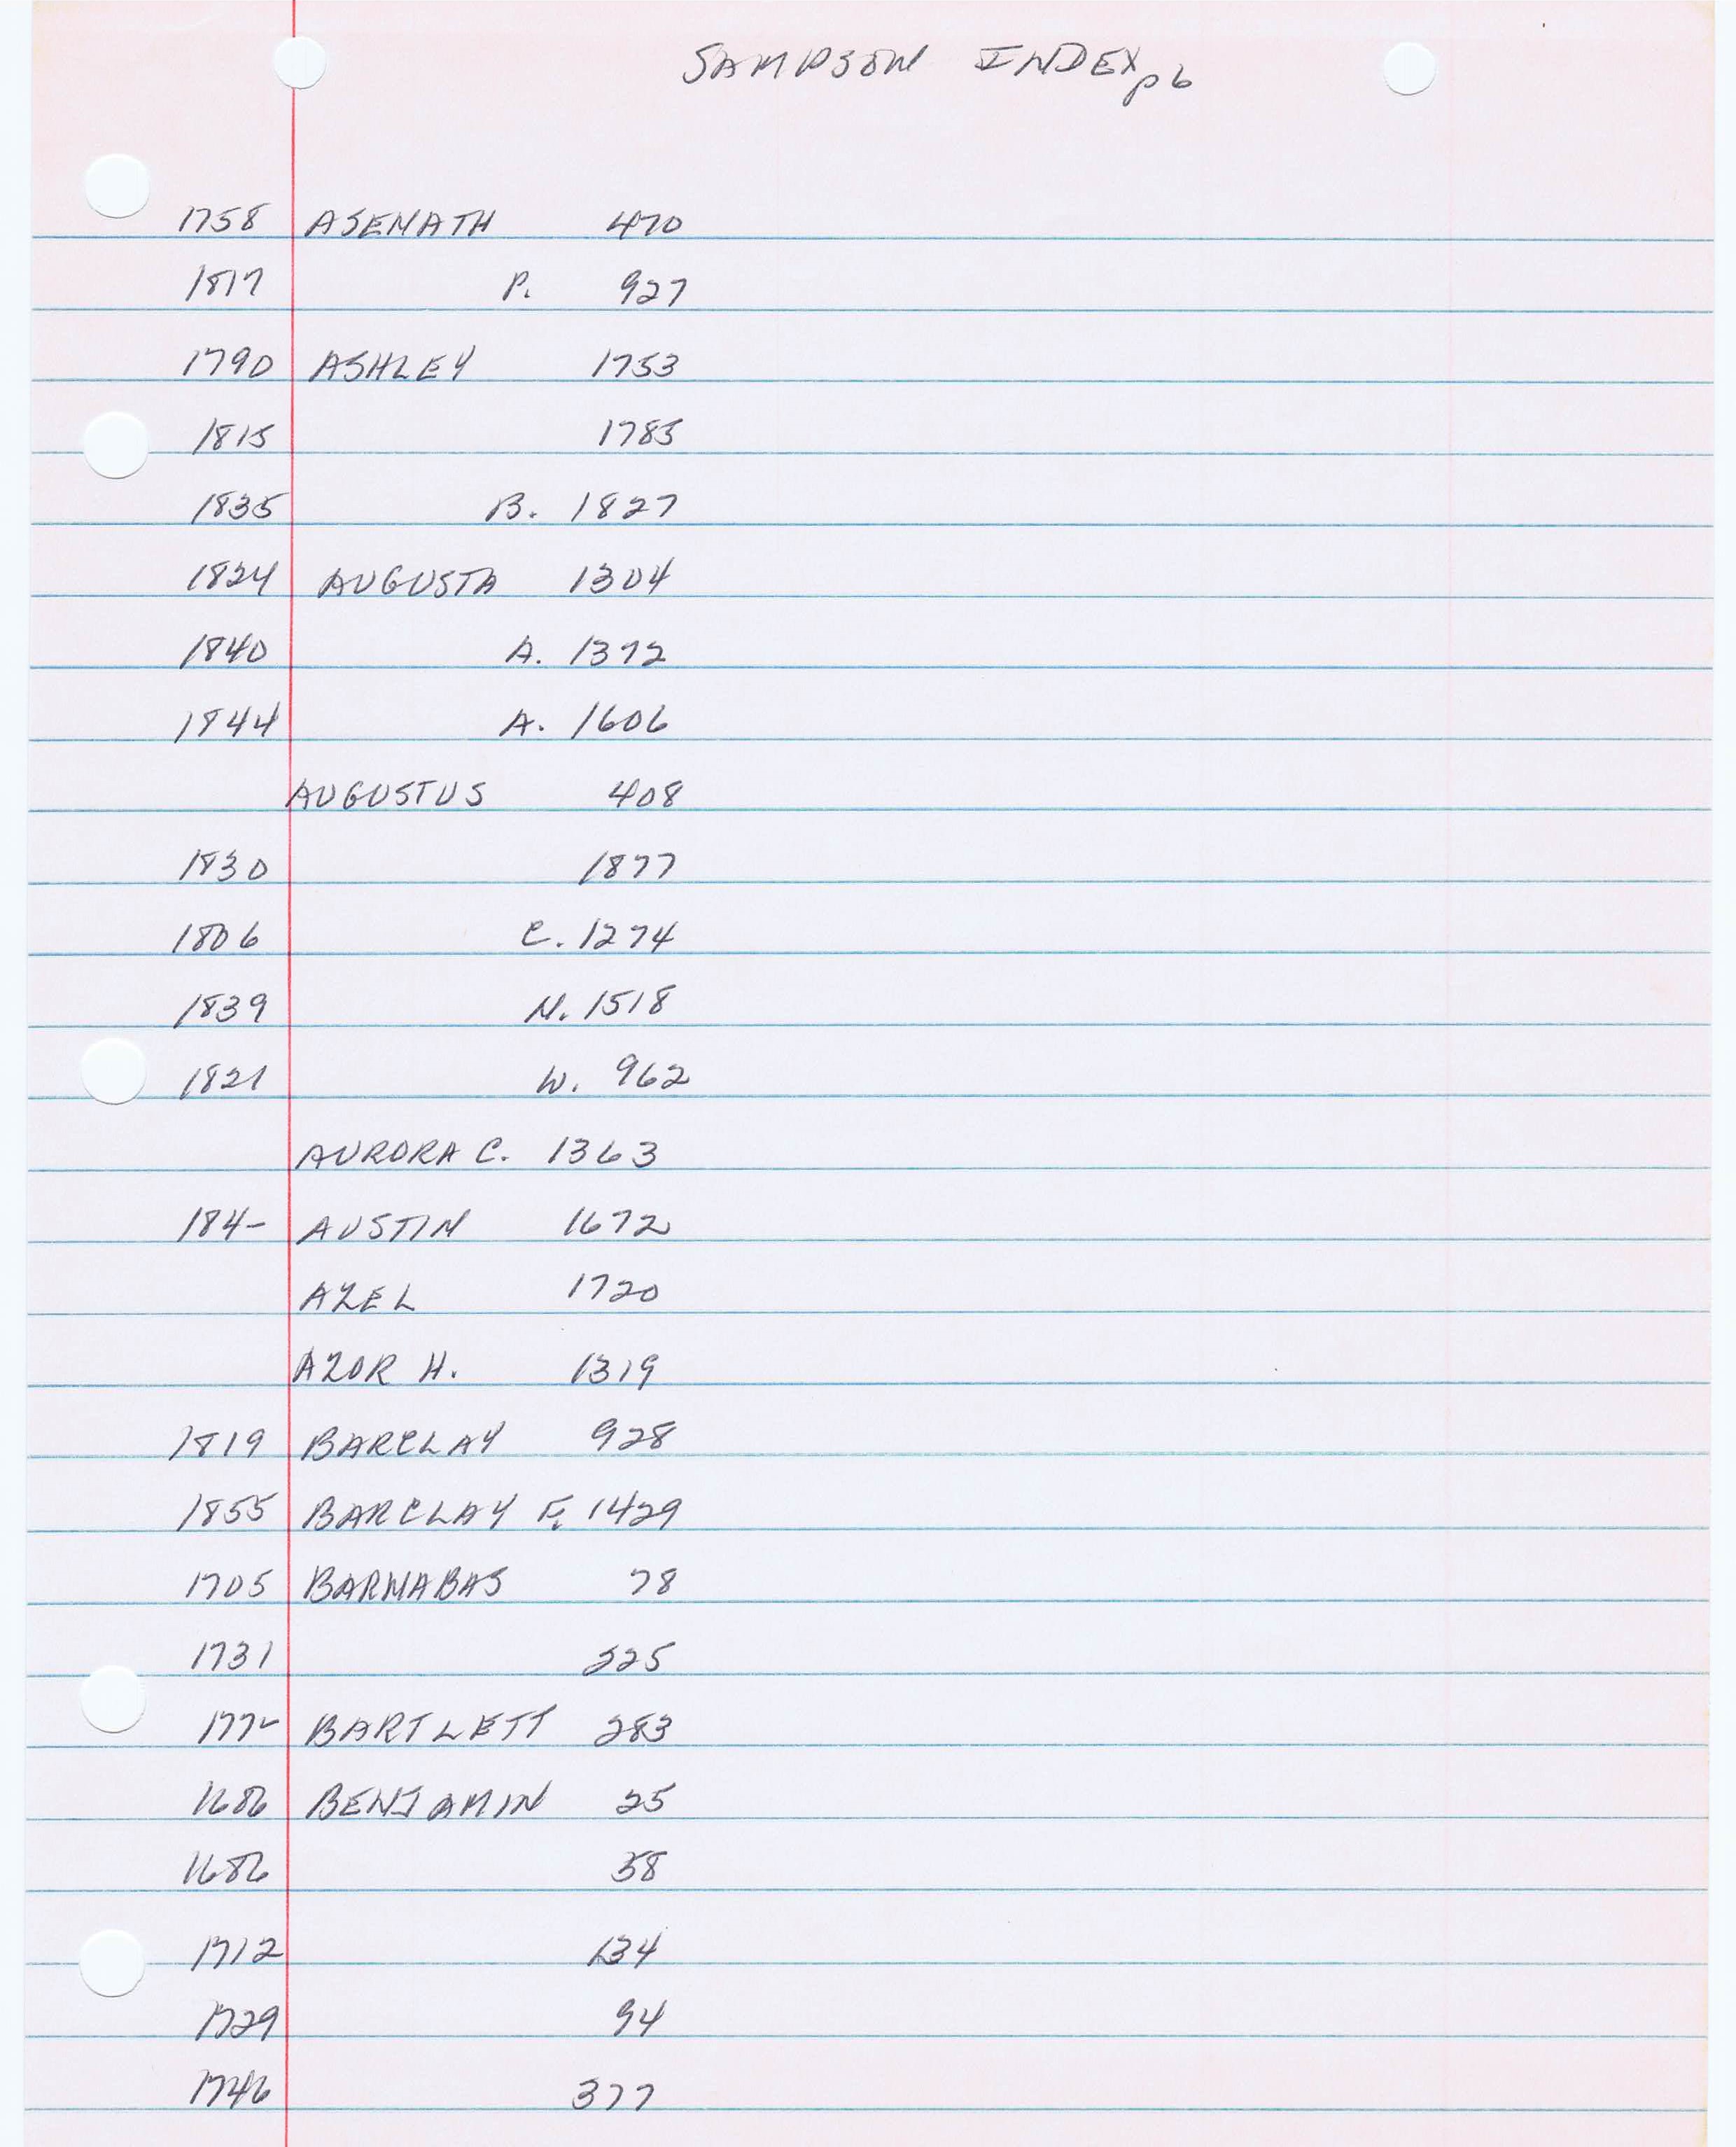 SAMPSON INDEX p6
1758 ASENATH 470
1817 P. 927
1790 ASHLEY 1753
1815 1785
1835 B. 1827
1824 AUGUSTA 1304
1840 A. 1372
1844 A. 1606
AUGUSTUS 408
1830 1877
1806 C. 1274
1839 N. 1518
1821 W. 962
AURORA C. 1363
184- AUSTIN 1672
AZEL 1720
AZOR H. 1319
1819 BARCLAY 928
1855 BARCLAY F. 1429
1705 BARNABAS 78
1731 225
177- BARTLETT 283
1686 BENJAMIN 25
1686 38
1712 134
1729 94
1746 377